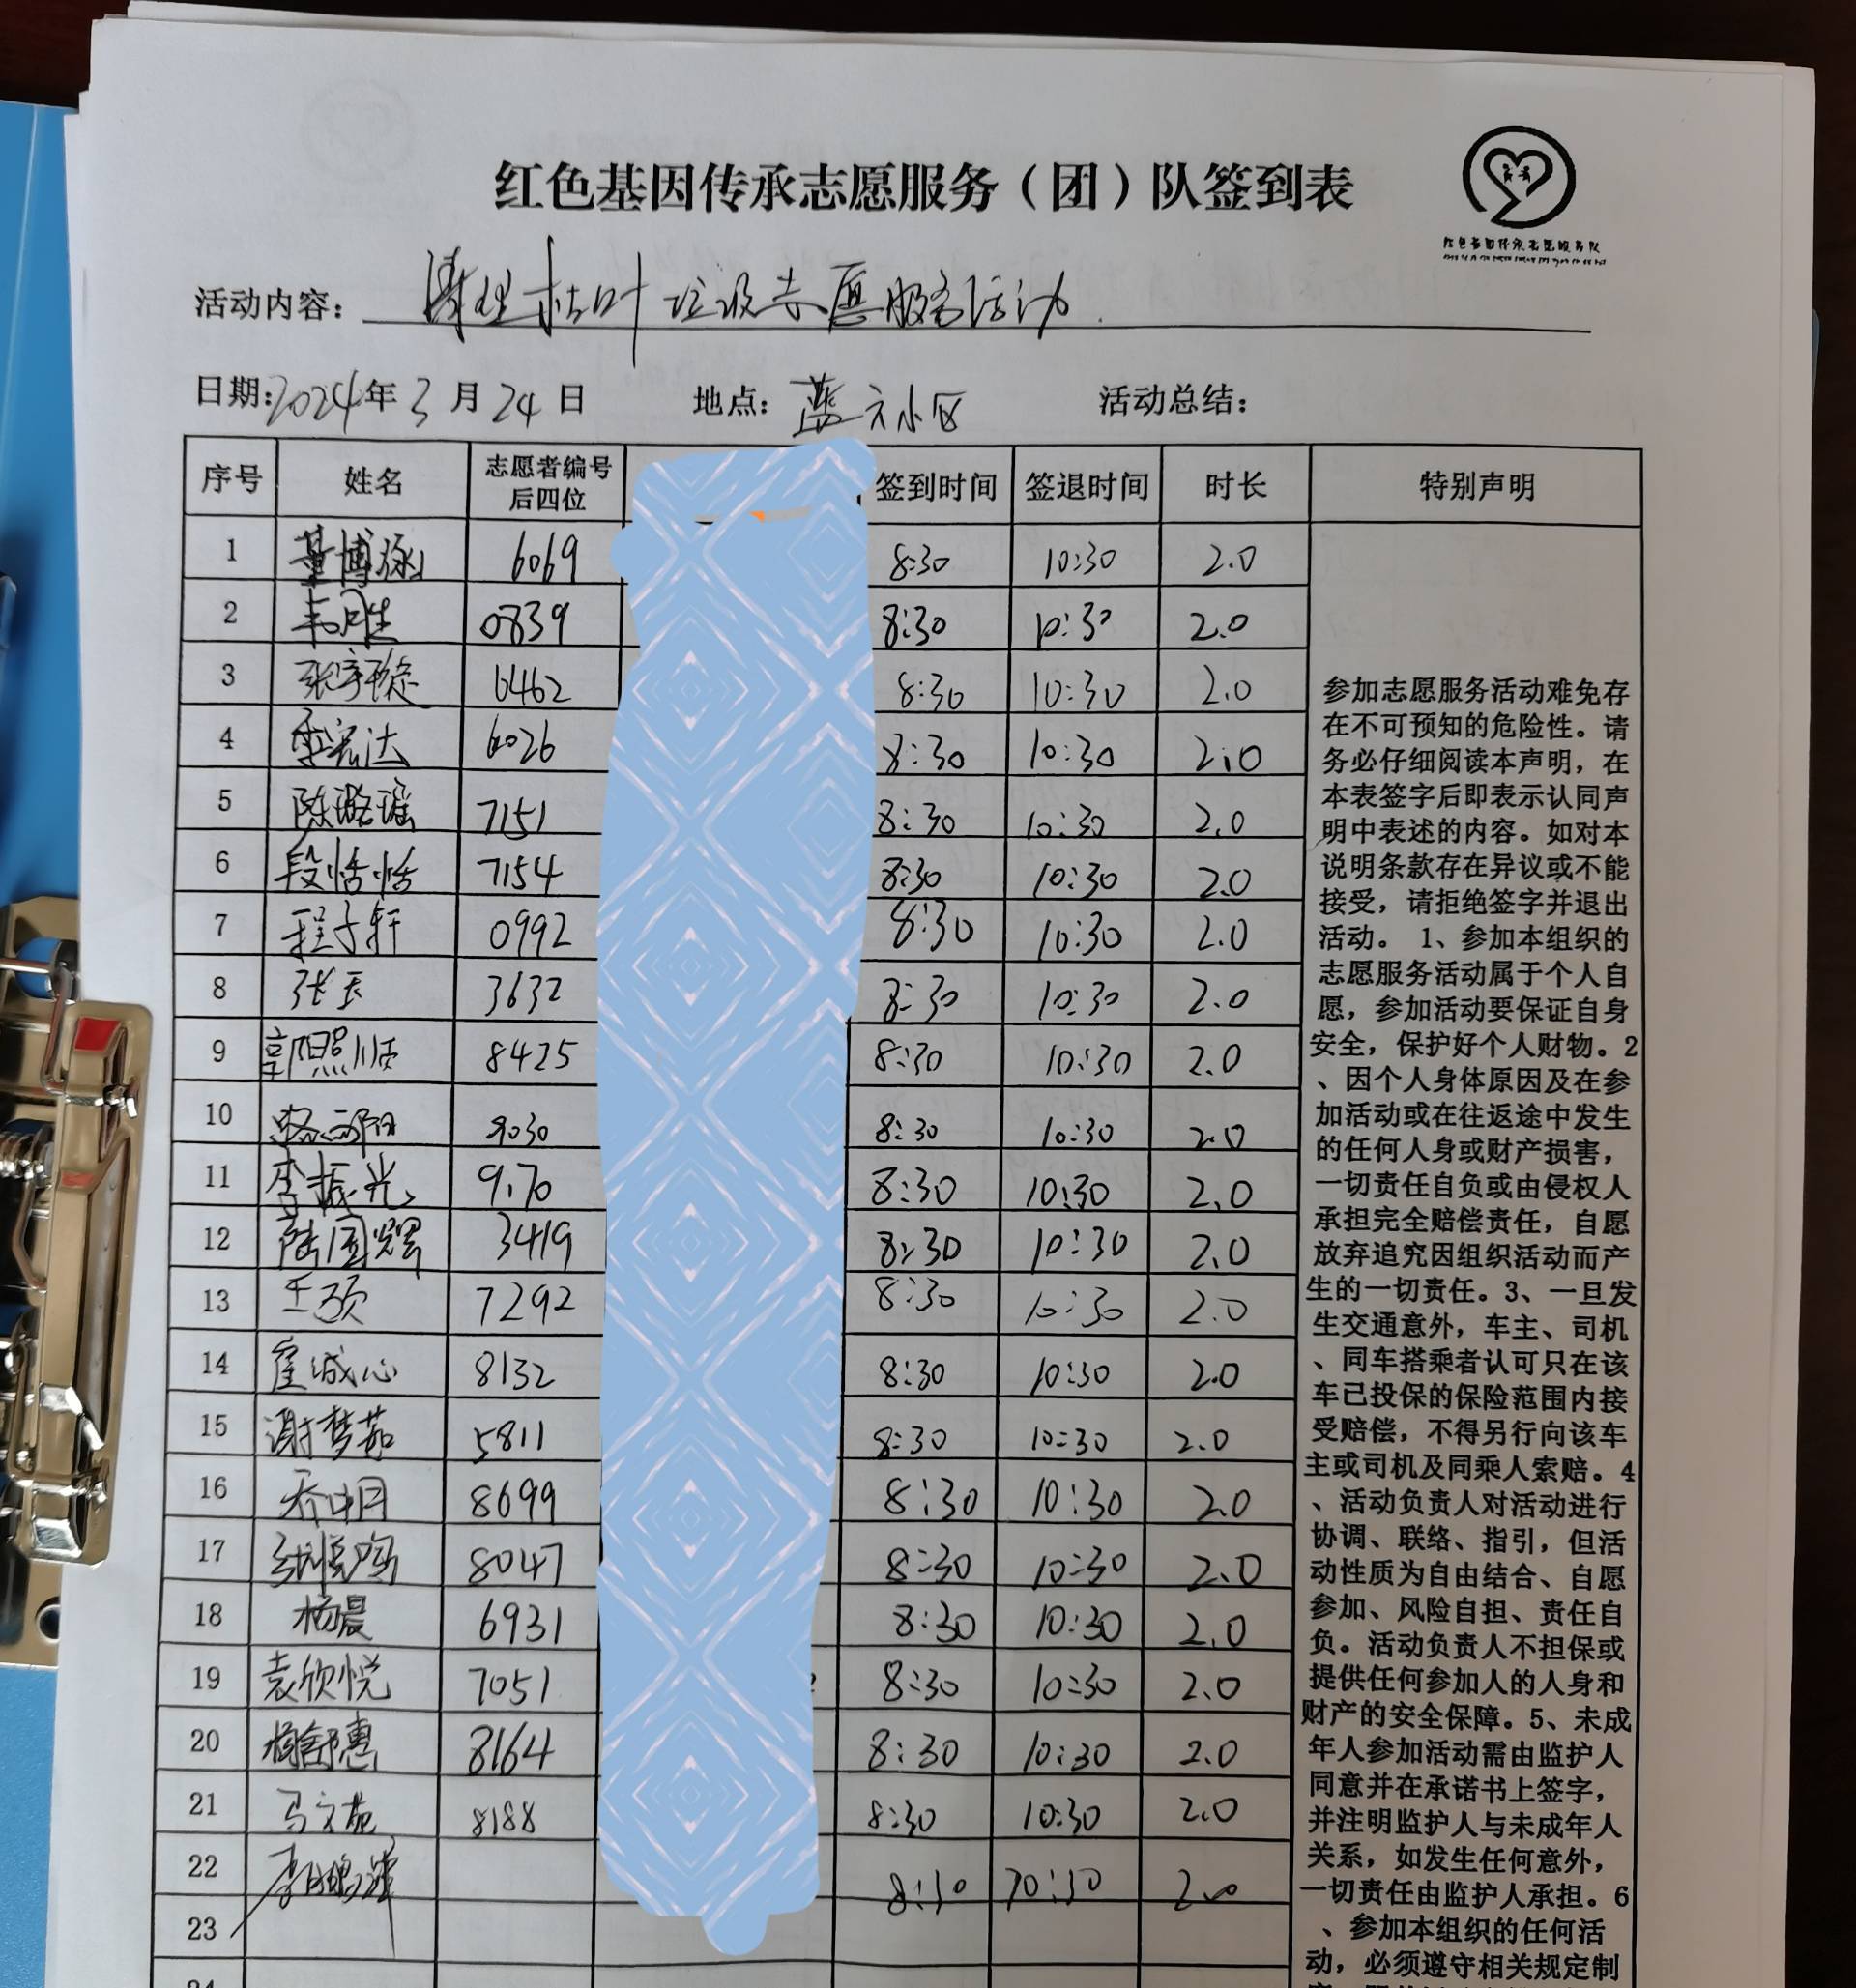 红色基因传承志愿服务（团）队签到表
活动内容： 清理枯叶垃圾志愿服务活动
日期:2024年3月24日 地点： 蓝天小区 活动总结：
序号 姓名 志愿者编号后四位 签到时间 签退时间 时长 特别声明
1 6069 8:30 10:30 2.0
2 0839 8:30 10:30 2.0
3 张宇 6462 8:30 10:30 2.0
4 6026 8:30 10:30 2.0
5 陈璐瑶 7151 8:30 10:30 2.0
6 段恬恬 7154 8:30 10:30 2.0
7 程子轩 0992 8:30 10:30 2.0
8 张玉 3632 8:30 10:30 2.0
9 郭照顺 8425 8:30 10:30 2.0
10 9030 8:30 10:30 2.0
11 李振光 9170 8:30 10:30 2.0
12 陆国辉 3419 8:30 10:30 2.0
13 王硕 7292 8:30 10:30 2.0
14 崔诚心 8132 8:30 10:30 2.0
15 谢梦茹 5811 8:30 10:30 2.0
16 8699 8:30 10:30 2.0
17 8047 8:30 10:30 2.0
18 杨晨 6931 8:30 10:30 2.0
19 袁欣悦 7051 8:30 10:30 2.0
20 杨舒惠 8164 8:30 10:30 2.0
21 马文苑 8188 8:30 10:30 2.0
22 8:30 10:30 2.0
23
参加志愿服务活动难免存
在不可预知的危险性。请
务必仔细阅读本声明，在
本表签字后即表示认同声
明中表述的内容。如对本
说明条款存在异议或不能
接受，请拒绝签字并退出
活动。 1、参加本组织的
志愿服务活动属于个人自
愿，参加活动要保证自身
安全，保护好个人财物。2
、因个人身体原因及在参
加活动或在往返途中发生
的任何人身或财产损害，
一切责任自负或由侵权人
承担完全赔偿责任，自愿
放弃追究因组织活动而产
生的一切责任。3、一旦发
生交通意外，车主、司机
、同车搭乘者认可只在该
车已投保的保险范围内接
受赔偿，不得另行向该车
主或司机及同乘人索赔。4
、活动负责人对活动进行
协调、联络、指引，但活
动性质为自由结合、自愿
参加、风险自担、责任自
负。活动负责人不担保或
提供任何参加人的人身和
财产的安全保障。5、未成
年人参加活动需由监护人
同意并在承诺书上签字，
并注明监护人与未成年人
关系，如发生任何意外，
一切责任由监护人承担。6
、参加本组织的任何活
动，必须遵守相关规定制